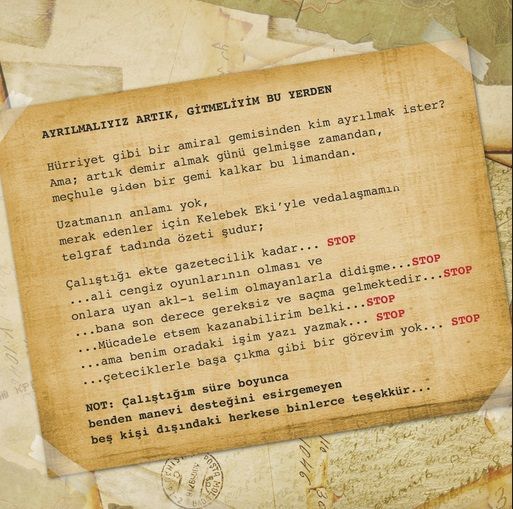 AYRILMALIYIZ ARTIK, GİTMELİYİM BU YERDEN
Hürriyet gibi bir amiral gemisinden kim ayrılmak ister?
Ama; artık demir almak günü gelmişse zamandan,
meçhule giden bir gemi kalkar bu limandan.
Uzatmanın anlamı yok,
merak edenler için Kelebek Eki'yle vedalaşmamın
telgraf tadında özeti şudur;
Çalıştığı ekte gazetecilik kadar... STOP
...ali cengiz oyunlarının olması ve
onlara uyan akl-ı selim olmayanlarla didişme...STOP
...bana son derece gereksiz ve saçma gelmektedir...STOP
...Mücadele etsem kazanabilirim belki...STOP
...ama benim oradaki işim yazı yazmak... STOP
...çeteciklerle başa çıkma gibi bir görevim yok... STOP
NOT: Çalıştığım süre boyunca
benden manevi desteğini esirgemeyen
beş kişi dışındaki herkese binlerce teşekkür...